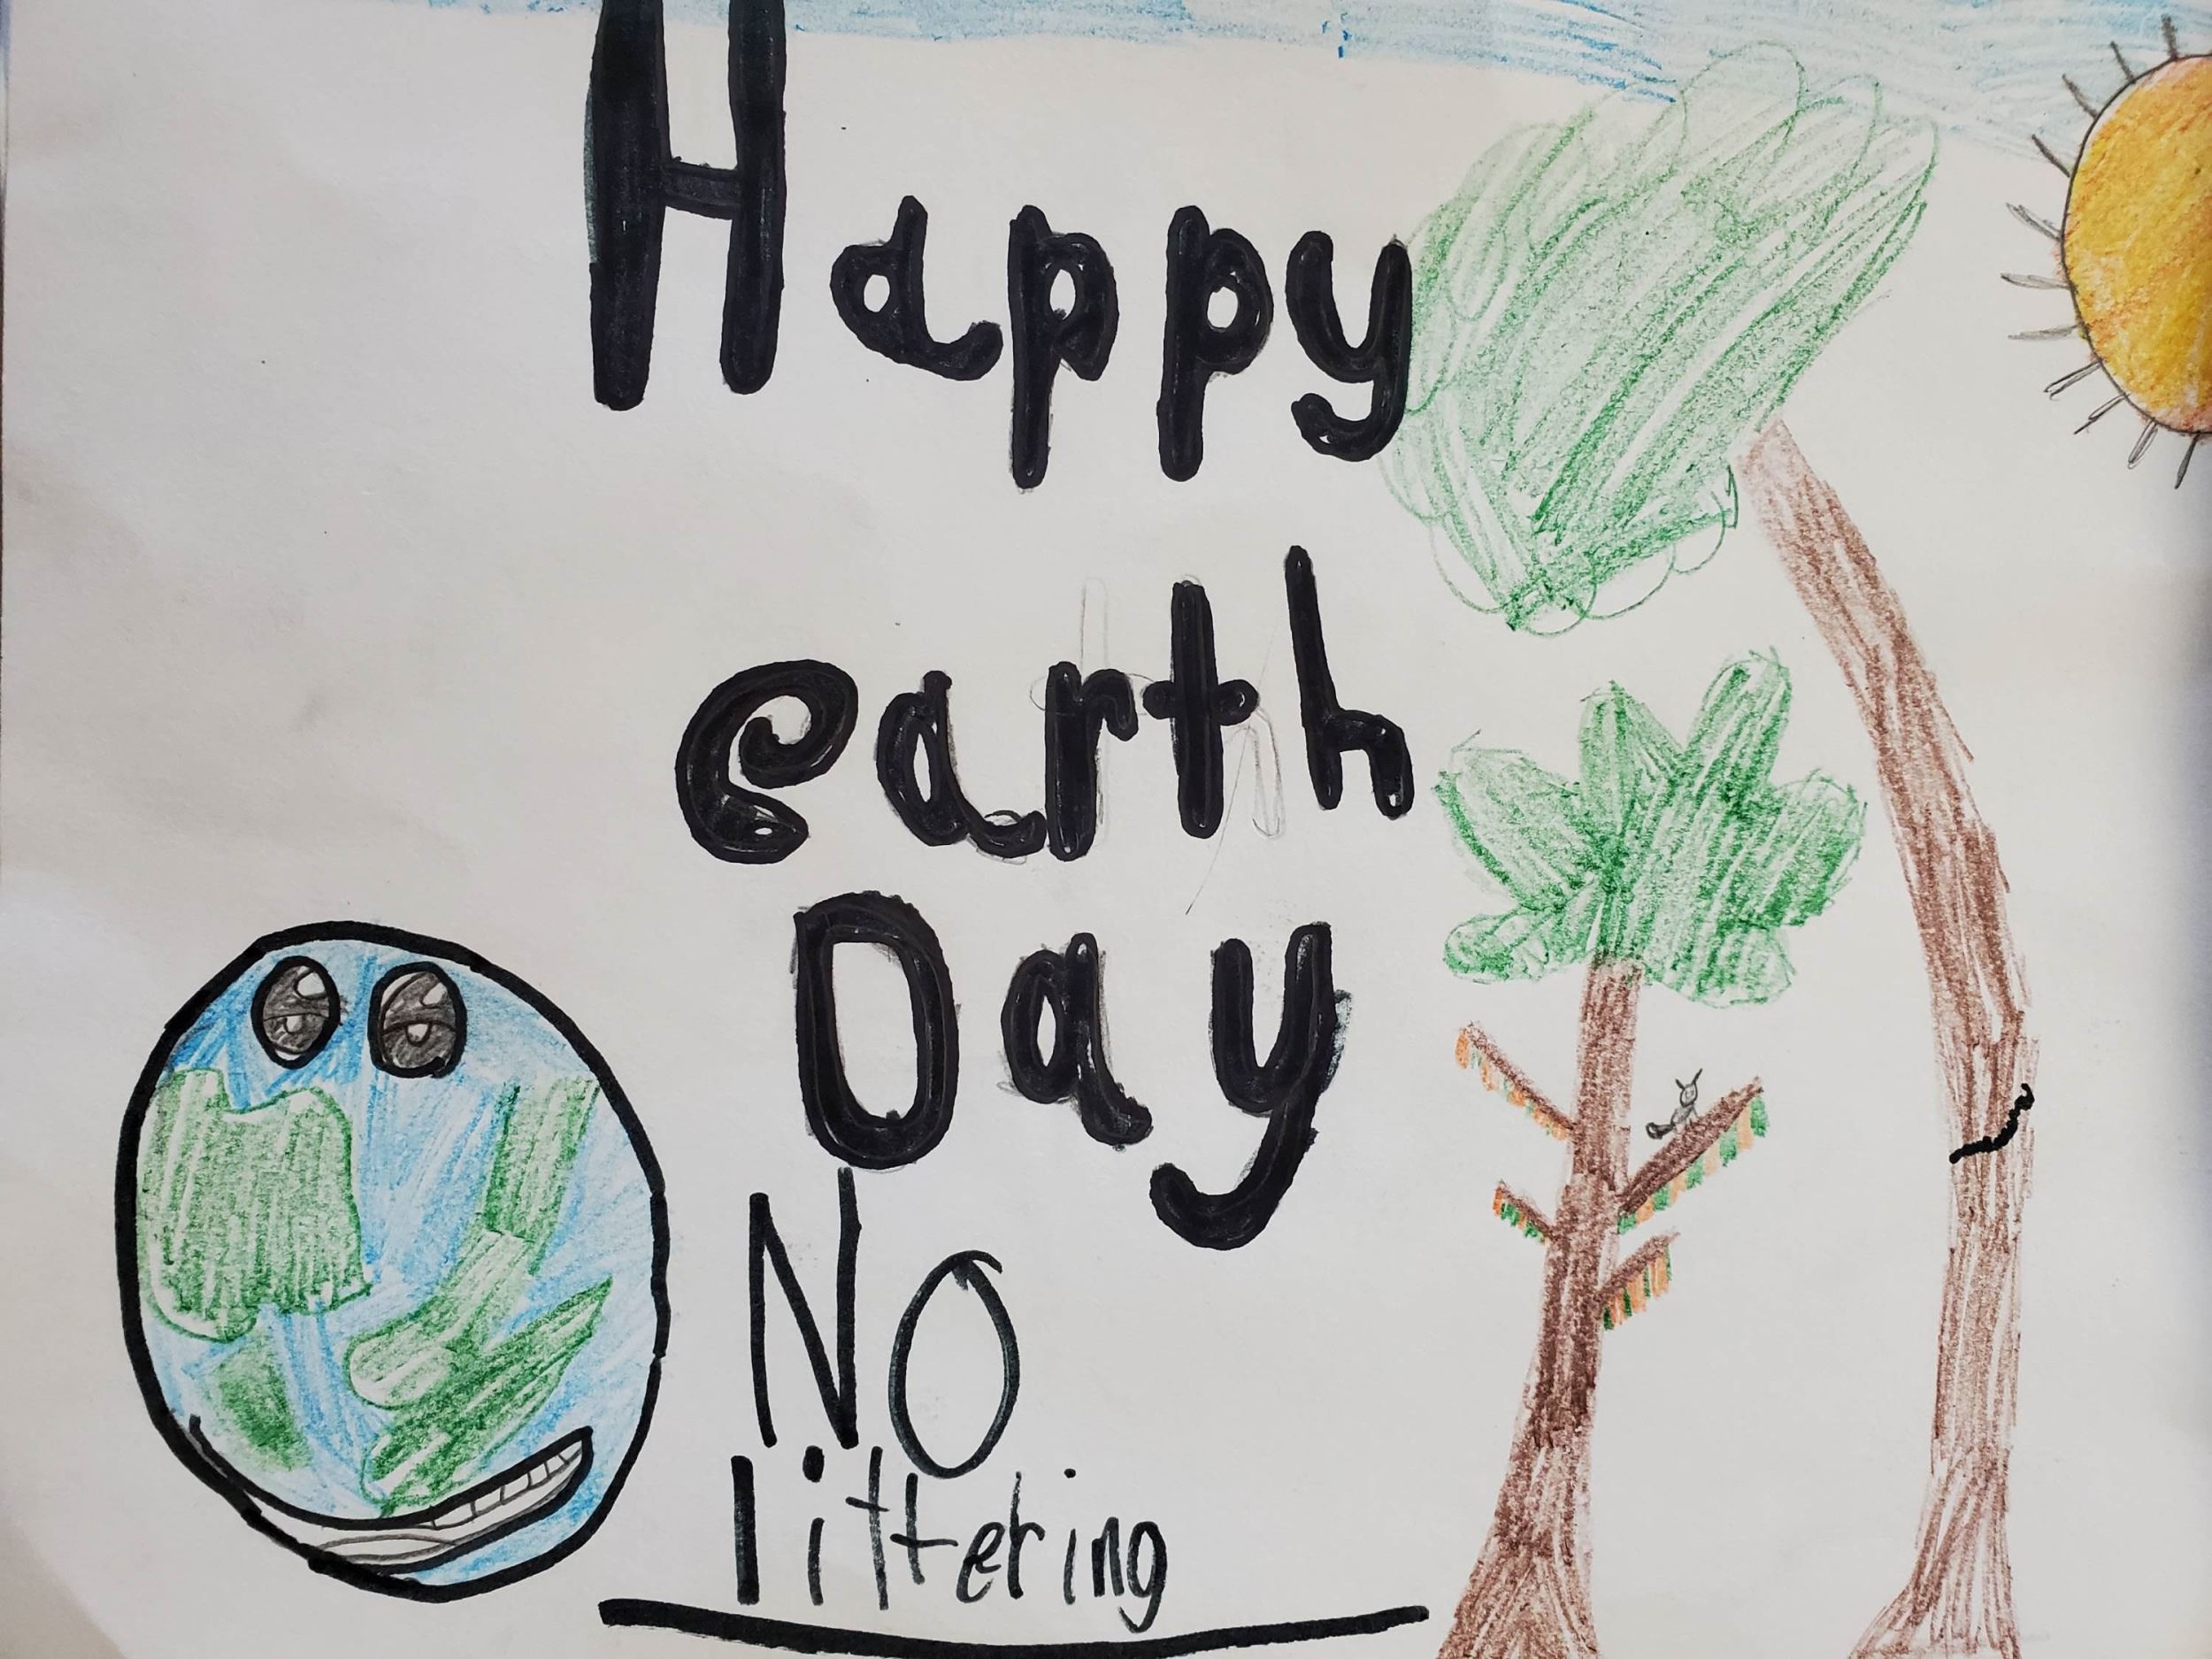 Happy
earth
Day
NO
littering